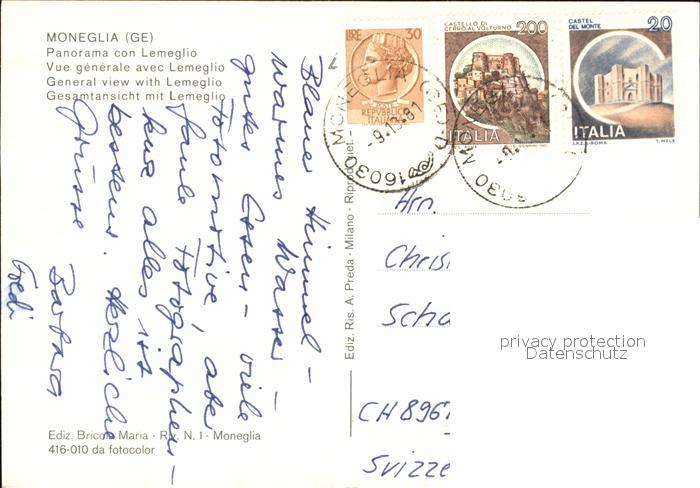 MONEGLIA (GE)
Panorama con Lemeglio
Vue générale avec Lemeglio
General view with Lemeglio
Gesamtansicht mit Lemeglio
LIRE 30
POSTE
REPVBBLICA
ITALIANA
CASTELLO DI
CERRO AL VOLTURNO 200
ITALIA
CASTEL
DEL MONTE 20
ITALIA
I.P.Z.S.-ROMA T. MELE
16030 MONEGLIA (GE)
16030 MO
Blauer Himmel -
warmes Wasser -
gutes Essen - viele
Fotomotive, aber
faule Fotographen -
kurz alles ist
bestens. Herzliche
Grüsse
Barbara
Ediz. Ris. A. Preda - Milano - Riprod. viet. -
Hrn.
Christ
Scha
CH 8967
Svizze
privacy protection
Datenschutz
Ediz. Bricoli Maria - Riv. N. 1 - Moneglia
416-010 da fotocolor